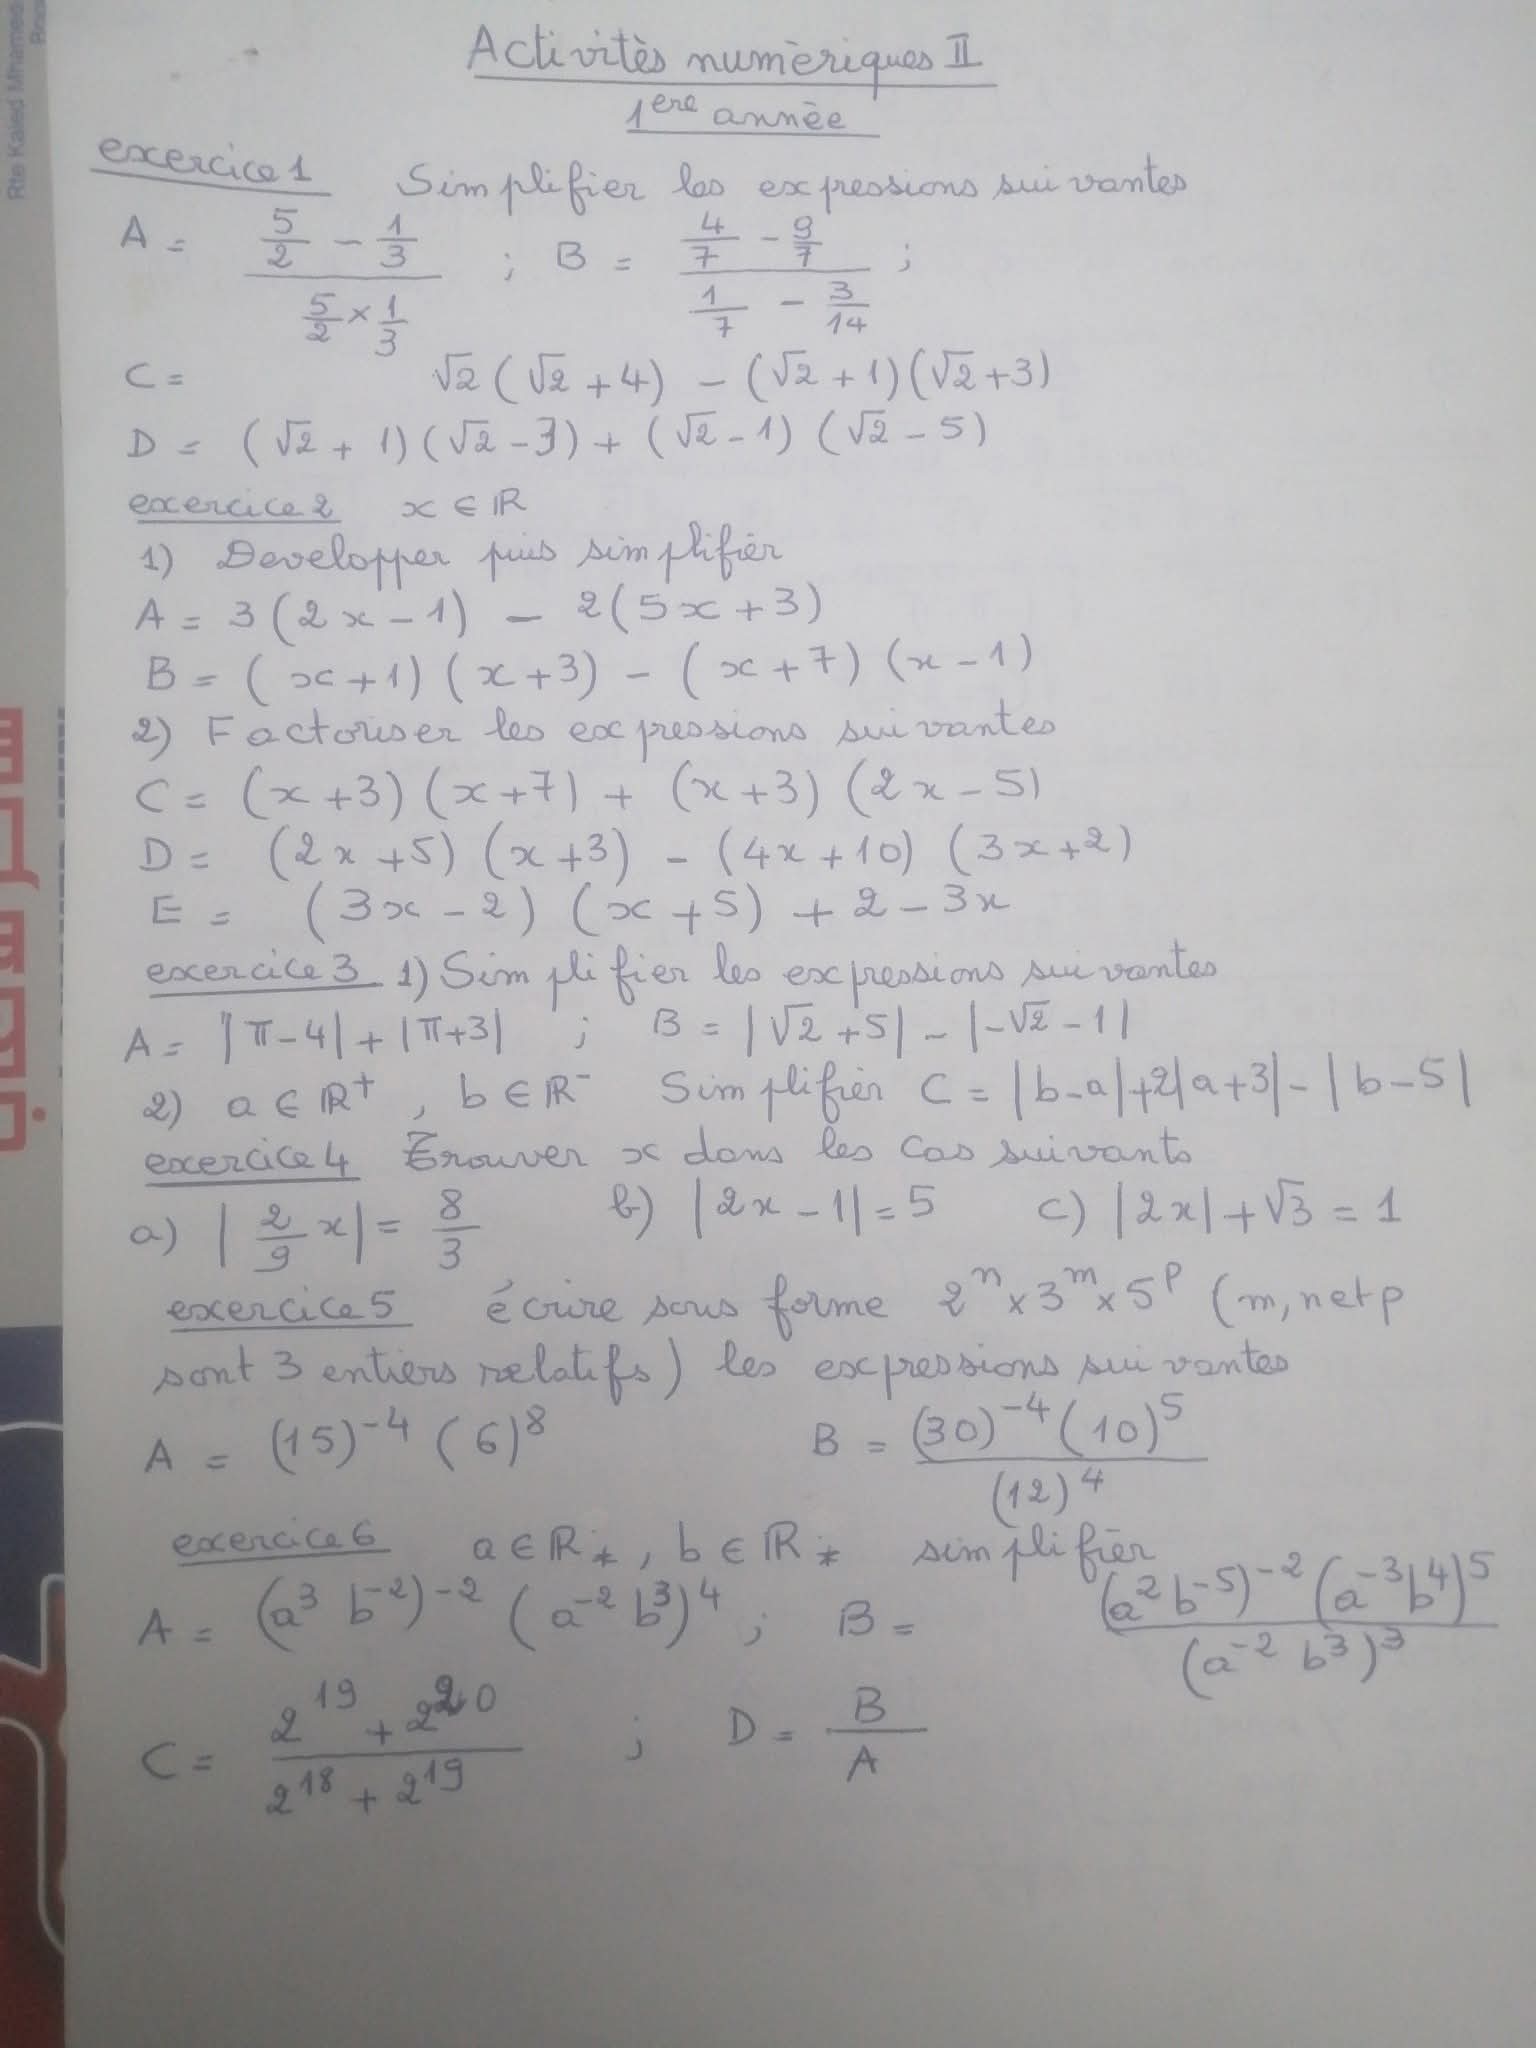 Rte Kaied Mhamed
Activitès numèriques II
1ere annèe
exercice 1 Simplifier les expressions suivantes
A = (5/2 - 1/3) / (5/2 × 1/3) ; B = (4/7 - 9/7) / (1/7 - 3/14) ;
C = √2 (√2 + 4) - (√2 + 1)(√2 + 3)
D = (√2 + 1)(√2 - 3) + (√2 - 1) (√2 - 5)
exercice 2 x ∈ ℝ
1) Developper puis simplifièr
A = 3(2x - 1) - 2(5x + 3)
B = (x + 1)(x + 3) - (x + 7)(x - 1)
2) Factoriser les expressions suivantes
C = (x + 3)(x + 7) + (x + 3)(2x - 5)
D = (2x + 5)(x + 3) - (4x + 10)(3x + 2)
E = (3x - 2)(x + 5) + 2 - 3x
exercice 3 1) Simplifier les expressions suivantes
A = |π - 4| + |π + 3| ; B = |√2 + 5| - |-√2 - 1|
2) a ∈ ℝ⁺ , b ∈ ℝ⁻ Simplifièr C = |b - a| + 2|a + 3| - |b - 5|
exercice 4 Trouver x dans les cas suivants
a) |2/9 x| = 8/3 b) |2x - 1| = 5 c) |2x| + √3 = 1
exercice 5 écrire sous forme 2ⁿ × 3ᵐ × 5ᵖ (m, n et p
sont 3 entiers relatifs) les expressions suivantes
A = (15)⁻⁴ (6)⁸ B = (30)⁻⁴ (10)⁵ / (12)⁴
exercice 6 a ∈ ℝ* , b ∈ ℝ* simplifièr
A = (a³ b⁻²)⁻² (a⁻² b³)⁴ ; B = (a² b⁻⁵)⁻² (a⁻³ b⁴)⁵ / (a⁻² b³)³
C = (2¹⁹ + 2²⁰) / (2¹⁸ + 2¹⁹) ; D = B/A